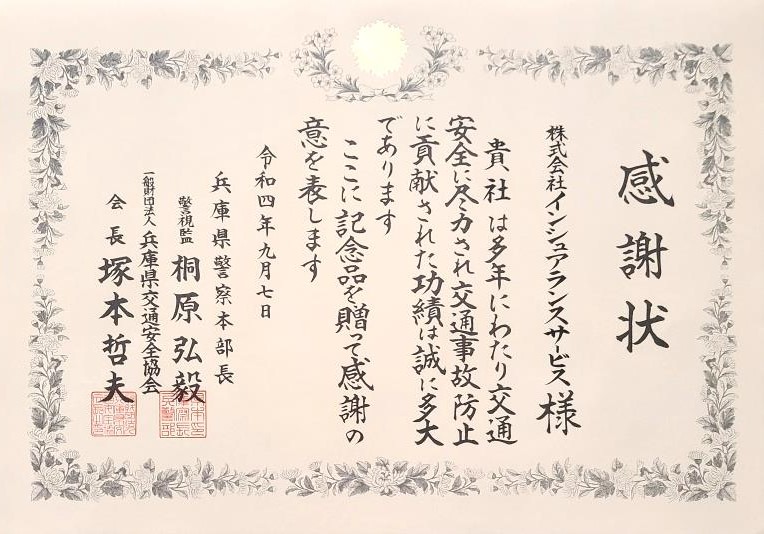 感謝状
株式会社インシュアランスサービス 様
貴社は多年にわたり交通
安全に尽力され交通事故防止
に貢献された功績は誠に多大
であります
ここに記念品を贈って感謝の
意を表します
令和四年九月七日
兵庫県警察本部長
警視監 桐原弘毅
一般財団法人 兵庫県交通安全協会
会長 塚本哲夫